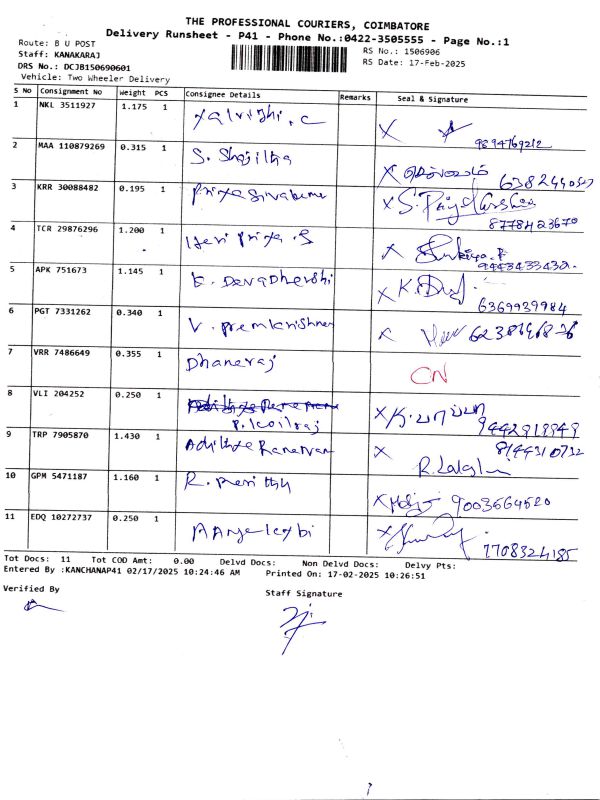 THE PROFESSIONAL COURIERS, COIMBATORE
Delivery Runsheet - P41 - Phone No.:0422-3505555 - Page No.:1
Route: B U POST
Staff: KANAKARAJ
DRS No.: DCJB150690601
Vehicle: Two Wheeler Delivery
RS No.: 1506906
RS Date: 17-Feb-2025
S No Consignment No Weight PCS Consignee Details Remarks Seal & Signature
1 NKL 3511927 1.175 1
9894769212
2 MAA 110879269 0.315 1 S.
3 KRR 30088482 0.195 1
8778423670
4 TCR 29876296 1.200 1 Hari Priya .S
9443433432
5 APK 751673 1.145 1 K. Devadharshi
6369939984
6 PGT 7331262 0.340 1 V. Premkrishnan
7 VRR 7486649 0.355 1 Dhaneraj CN
8 VLI 204252 0.250 1 P. koilraj
9442918949
9 TRP 7905870 1.430 1
8144310732
10 GPM 5471187 1.160 1 R.
9003564520
11 EDQ 10272737 0.250 1
7708324185
Tot Docs: 11 Tot COD Amt: 0.00 Delvd Docs: Non Delvd Docs: Delvy Pts:
Entered By :KANCHANAP41 02/17/2025 10:24:46 AM Printed On: 17-02-2025 10:26:51
Verified By
Staff Signature